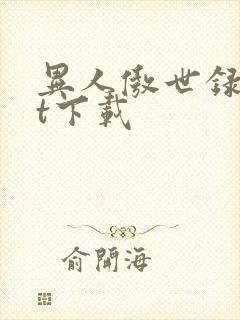 異人傲世録
t下載
俞開海